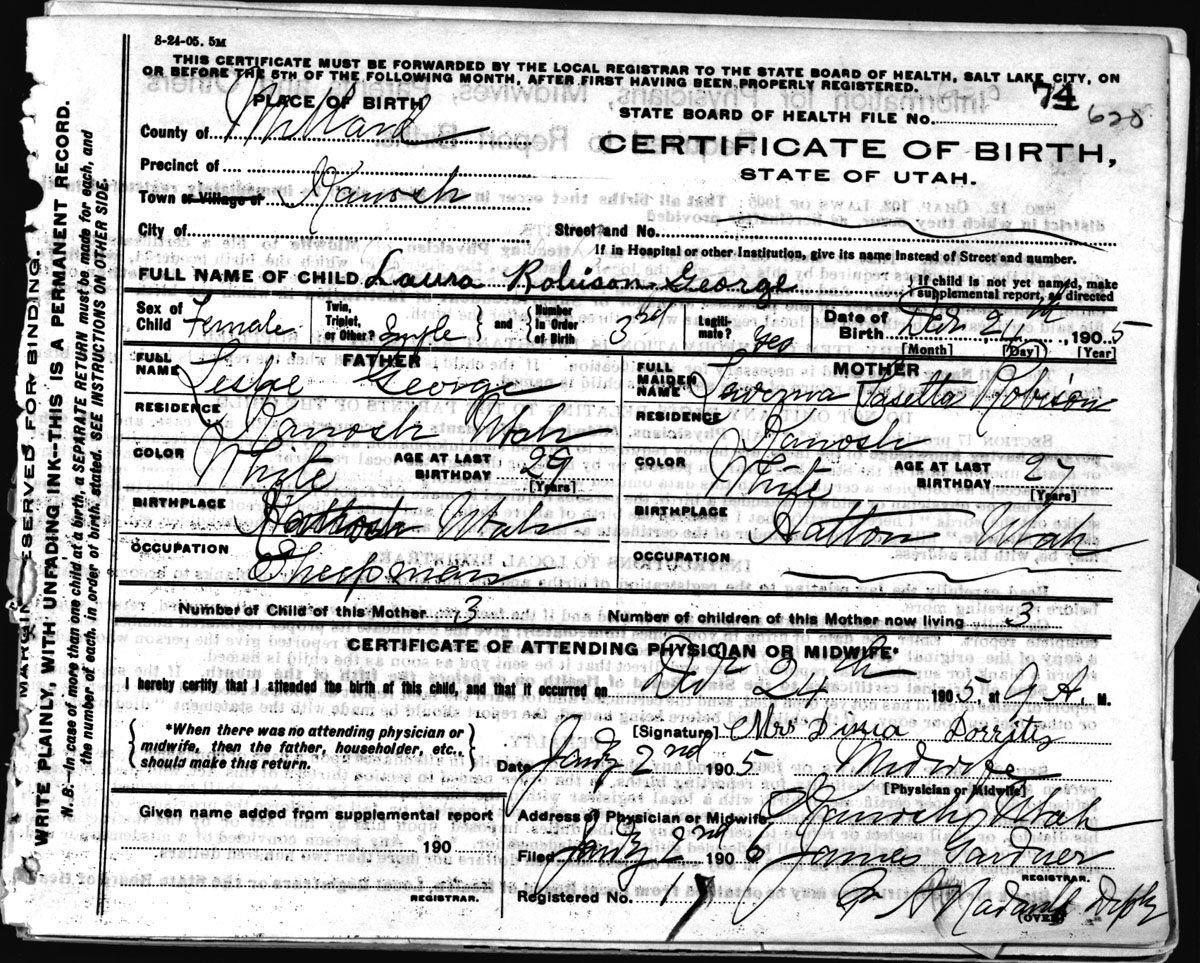 8-24-05. 5M
THIS CERTIFICATE MUST BE FORWARDED BY THE LOCAL REGISTRAR TO THE STATE BOARD OF HEALTH, SALT LAKE CITY, ON
OR BEFORE THE 5TH OF THE FOLLOWING MONTH, AFTER FIRST HAVING BEEN PROPERLY REGISTERED.
PLACE OF BIRTH
STATE BOARD OF HEALTH FILE NO. 74 628
County of Millard
CERTIFICATE OF BIRTH,
STATE OF UTAH.
Precinct of
Town or Village of Kanosh
City of Street and No.
If in Hospital or other Institution, give its name instead of Street and number.
FULL NAME OF CHILD Laura Robison George
If child is not yet named, make supplemental report, as directed
Sex of Child Female
Twin, Triplet, or Other? Single and Number in Order of Birth 3rd
Legitimate? Yes
Date of Birth Dec. 24th, 1905
[Month] [Day] [Year]
FATHER
FULL NAME Leslie George
RESIDENCE Kanosh Utah
COLOR White AGE AT LAST BIRTHDAY 29
[Years]
BIRTHPLACE Utah
OCCUPATION Sheepman
MOTHER
FULL MAIDEN NAME Robison
RESIDENCE Kanosh
COLOR White AGE AT LAST BIRTHDAY 27
[Years]
BIRTHPLACE Hatton Utah
OCCUPATION
Number of Child of this Mother 3 Number of children of this Mother now living 3
CERTIFICATE OF ATTENDING PHYSICIAN OR MIDWIFE*
I hereby certify that I attended the birth of this child, and that it occurred on Dec 24th 1905, at 9 A. M.
*When there was no attending physician or
midwife, then the father, householder, etc.,
should make this return.
[Signature] Mrs
Date Jany 2nd 1905 Midwife
[Physician or Midwife]
Given name added from supplemental report
190
REGISTRAR.
Address of Physician or Midwife Kanosh, Utah
Filed Jany 2nd 1906 James Gardner
REGISTRAR.
Registered No. 1
(OVER)
MARGIN RESERVED FOR BINDING.
WRITE PLAINLY, WITH UNFADING INK—THIS IS A PERMANENT RECORD.
N. B.—In case of more than one child at a birth, a SEPARATE RETURN must be made for each, and
the number of each, in order of birth, stated. SEE INSTRUCTIONS ON OTHER SIDE.